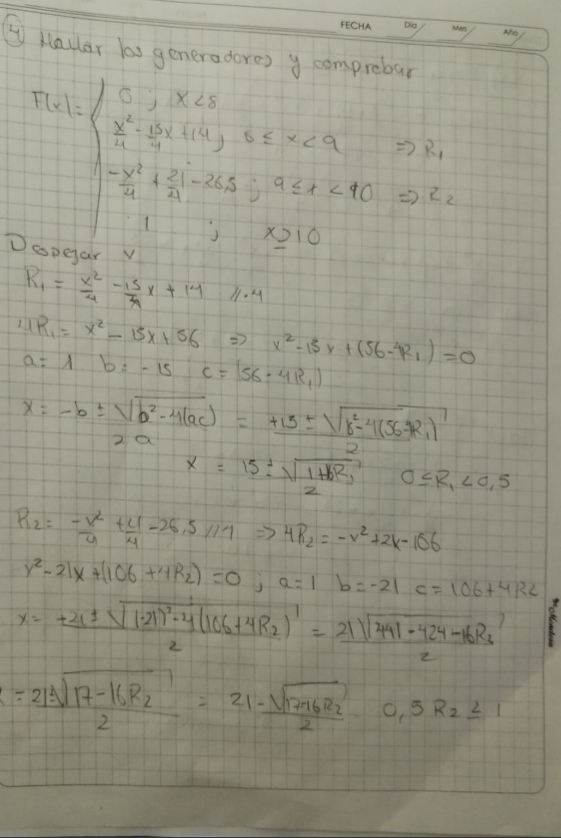 FECHA Día Mes Año
④ Hallar los generadores y comprobar
F(x) = { 0 ; x < 8
x²/4 - 15/4 x + 14 ; 8 ≤ x < 9 ⇒ R₁
-x²/4 + 21/4 - 26,5 ; 9 ≤ x < 10 ⇒ R₂
1 ; x ≥ 10
Despejar x
R₁ = x²/4 - 15/4 x + 14 //·4
4R₁ = x² - 15x + 56 ⇒ x² - 15x + (56 - 4R₁) = 0
a = 1 b = -15 c = (56 - 4R₁)
x = -b ± √(b² - 4(ac)) / 2a = +15 ± √(b² - 4(56-4R₁)) / 2
x = 15 ± √(1+16R₁) / 2 0 ≤ R₁ < 0,5
R₂ = -x²/4 + 21/4 - 26,5 //4 ⇒ 4R₂ = -x² + 2x - 106
x² - 21x + (106 + 4R₂) = 0 ; a = 1 b = -21 c = 106 + 4R2
x = +21 ± √((-21)² - 4(106 + 4R₂)) / 2 = 21 √(441 - 424 - 16R₂) / 2
x = 21 ± √(17 - 16R₂) / 2 = 21 - √(17-16R₂) / 2 0,5 R₂ ≥ 1